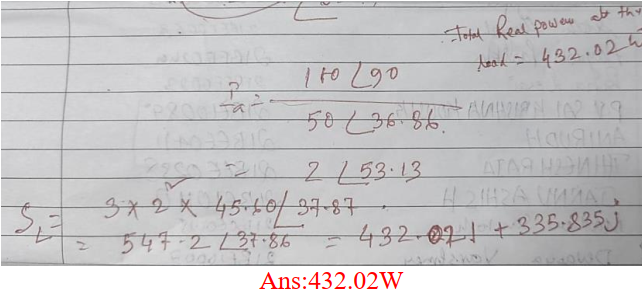 Total Real power at the
load = 432.02
110 ∠90
Ia =
50 ∠36.86
= 2 ∠53.13
SL = 3 × 2 × 45.60 ∠37.87
= 547.2 ∠37.86 = 432.021 + 335.835j
Ans:432.02W